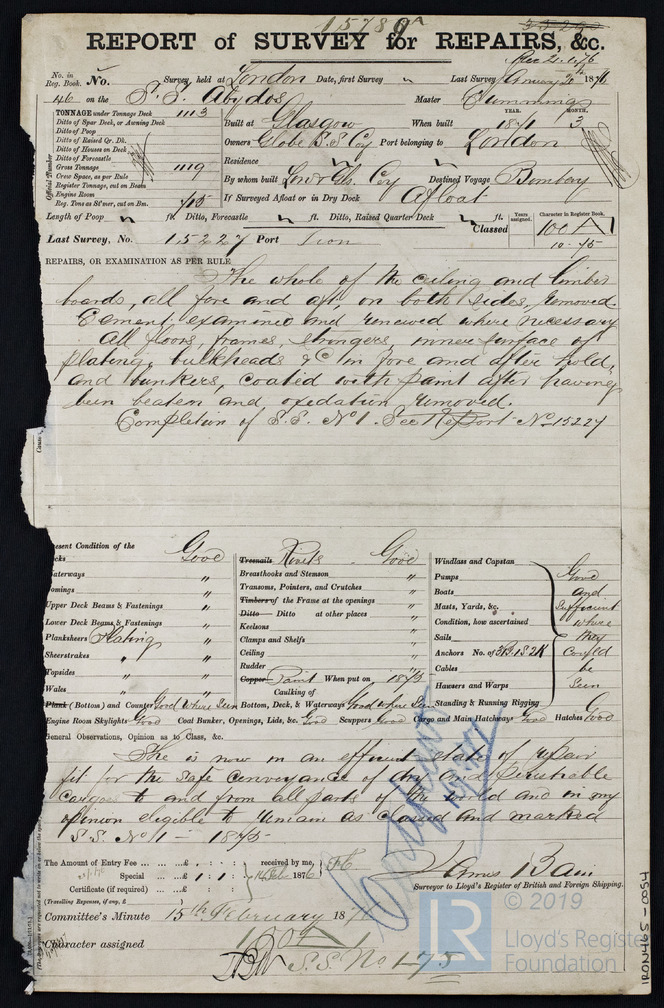 15789A
REPORT of SURVEY for REPAIRS, &c.
No. in Reg. Book. No. Survey, held at London Date, first Survey " Last Survey, January 20th 1876
46 on the S.S. Abydos Master Cummings
TONNAGE under Tonnage Deck 1113
Ditto of Spar Deck, or Awning Deck
Ditto of Poop
Ditto of Raised Qr. Dk.
Ditto of Houses on Deck
Ditto of Forecastle
Gross Tonnage 1119
Crew Space, as per Rule
Register Tonnage, cut on Beam
Engine Room
Reg. Tons as St'mer, cut on Bm. 715
Official Number
YEAR. MONTH.
Built at Glasgow When built 1871 3
Owners Globe S.S. Coy Port belonging to London
Residence
By whom built Destined Voyage Bombay
If Surveyed Afloat or in Dry Dock Afloat
Length of Poop ft. Ditto, Forecastle ft. Ditto, Raised Quarter Deck ft. Classed
Years assigned. Character in Register Book.
100 A1
10-75
Last Survey, No. 15227 Port Iron
REPAIRS, OR EXAMINATION AS PER RULE
The whole of the ceiling and limber
boards, all fore and aft, on both sides, removed.
Cement examined and renewed where necessary
All floors, frames, stringers, inner surface of
plating, bulkheads &c in fore and after hold,
and bunkers, coated with paint after having
been beaten and oxidation removed.
Completion of S.S. No 1. See Report No 15227
Present Condition of the
Decks Good
Waterways "
Comings "
Upper Deck Beams & Fastenings "
Lower Deck Beams & Fastenings "
Planksheers Plating "
Sheerstrakes " "
Topsides " "
Wales "
Plank (Bottom) and Counter Good where seen
Treenails Rivets Good
Breasthooks and Stemson "
Transoms, Pointers, and Crutches "
Timbers of the Frame at the openings "
Ditto Ditto at other places "
Keelsons "
Clamps and Shelfs "
Ceiling "
Rudder "
Copper Paint When put on 1875
Caulking of
Bottom, Deck, & Waterways Good where seen
Windlass and Capstan
Pumps
Boats
Masts, Yards, &c.
Condition, how ascertained
Sails
Anchors No. of 3B 1S 2K
Cables
Hawsers and Warps
Standing & Running Rigging
Good
and
Sufficient
where
they
could
be
seen
Engine Room Skylights Good Coal Bunker, Openings, Lids, &c. Good Scuppers Good Cargo and Main Hatchways Good Hatches Good
General Observations, Opinion as to Class, &c.
She is now in an efficient state of repair
fit for the safe conveyance of dry and perishable
cargoes to and from all parts of the world and in my
opinion eligible to remain as classed and marked
S.S. No 1 - 1875
The Amount of Entry Fee ... ... £ : :
Special ... ... £ 1 : 1 :
Certificate (if required) ... £ : :
(Travelling Expenses, if any, £
received by me,
14 Feb 1876
James Bain
Surveyor to Lloyd's Register of British and Foreign Shipping.
Committee's Minute 15th February 1876
Character assigned 100A1
S.S. No 1-75
IRON465-0054
© 2019
LR
Lloyd's Register
Foundation